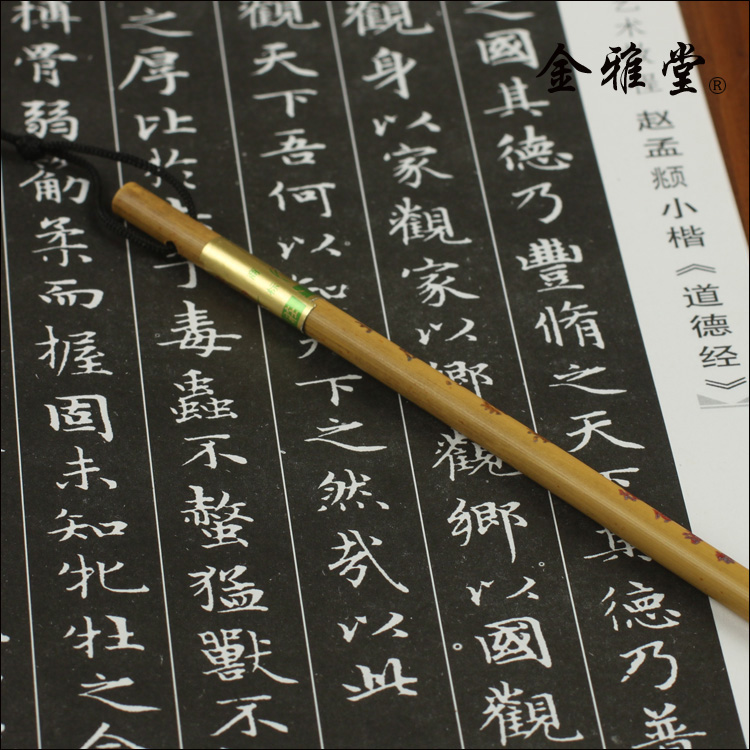 金雅堂®
艺术教程 赵孟頫小楷《道德经》
之國其德乃豐脩之天下其德乃普
觀身以家觀家以鄉觀鄉以國觀
觀天下吾何以知下之然哉以此
之厚比於子毒蟲不螫猛獸不
骨弱筋柔而握固未知牝牡之合